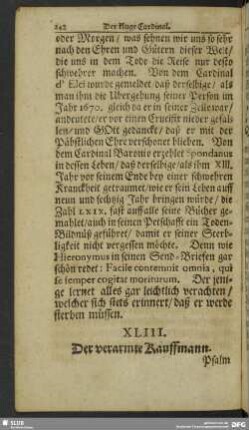 242 Der kluge Cardinal.
oder Morgen / was sehnen wir uns so sehr
nach den Ehren und Gütern dieser Welt /
die uns in dem Tode die Reise nur desto
schwehrer machen. Von dem Cardinal
d' Elci wurde gemeldet daß derselbige / als
man ihm die Ubergehung seiner Person im
Jahr 1670. gleich da er in seiner Zelle war /
andeutete / er vor einen Crucifix nieder gefal-
len / und GOtt gedanckt / daß er mit der
Päbstlichen Ehre verschonet blieben. Von
dem Cardinal Baronio erzehlet Spondanus
in dessen Leben / daß derselbige / als ihm XIII.
Jahr vor seinem Ende bey einer schwehren
Kranckheit geträumet / wie er sein Leben auff
neun und sechzig Jahr bringen würde / die
Zahl LXIX. fast auff alle seine Bücher ge-
mahlet / auch in seinen Petschafft ein Toden-
Bildnüß geführet / damit er seiner Sterb-
ligkeit nicht vergessen möchte. Denn wie
Hieronymus in seinen Send-Briefen gar
schön redet: Facile contemnit omnia, qui
se semper cogitat moriturum. Der jeni-
ge lernet alles gar leichtlich verachten /
welcher sich stets erinnert / daß er werde
sterben müssen.
XLIII.
Der verarmte Kauffmann.
Psalm
SLUB